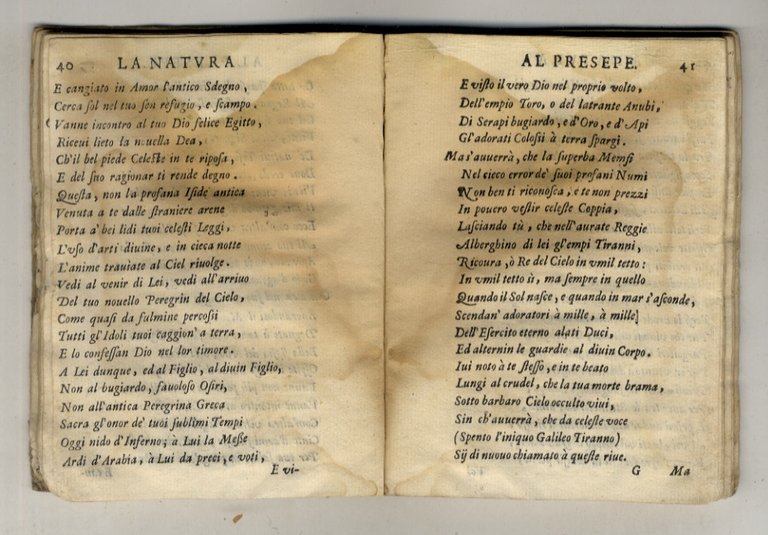 40 LA NATVRA
E cangiato in Amor l'antico Sdegno,
Cerca sol nel tuo sen refugio, e scampo.
Vanne incontro al tuo Dio felice Egitto,
Riceui lieto la nouella Dea,
Ch'il bel piede Celeste in te riposa,
E del suo ragionar ti rende degno.
Questa, non la profana Iside antica
Venuta a te dalle straniere arene
Porta a' bei lidi tuoi celesti Leggi,
L'vso d'arti diuine, e in cieca notte
L'anime trauiate al Ciel riuolge.
Vedi al venir di Lei, vedi all'arriuo
Del tuo nouello Peregrin del Cielo,
Come quasi da fulmine percossi
Tutti gl'Idoli tuoi caggion' a terra,
E lo confessan Dio nel lor timore.
A Lei dunque, ed al Figlio, al diuin Figlio,
Non al bugiardo, fauoloso Osiri,
Non all'antica Peregrina Greca
Sacra gl'onor de' tuoi sublimi Tempi
Oggi nido d'Inferno; à Lui la Messe
Ardi d'Arabia, à Lui da preci, e voti,
E vi-
AL PRESEPE. 41
E visto il vero Dio nel proprio volto,
Dell'empio Toro, o del latrante Anubi,
Di Serapi bugiardo, e d'Oro, e d'Api
Gl'adorati Colossi à terra spargi.
Ma s'auuerrà, che la superba Memfi
Nel cieco error de' suoi profani Numi
Non ben ti riconosca, e te non prezzi
In pouero vestir celeste Coppia,
Lasciando tù, che nell'aurate Reggie
Alberghino di lei gl'empi Tiranni,
Ricoura, ò Re del Cielo in vmil tetto:
In vmil tetto sì, ma sempre in quello
Quando il Sol nasce, e quando in mar s'asconde,
Scendan' adoratori à mille, à mille
Dell'Esercito eterno alati Duci,
Ed alternin le guardie al diuin Corpo.
Iui noto à te stesso, e in te beato
Lungi al crudel, che la tua morte brama,
Sotto barbaro Cielo occulto viui,
Sin ch'auuerrà, che da celeste voce
(Spento l'iniquo Galileo Tiranno)
Sij di nuouo chiamato à queste riue.
G Ma